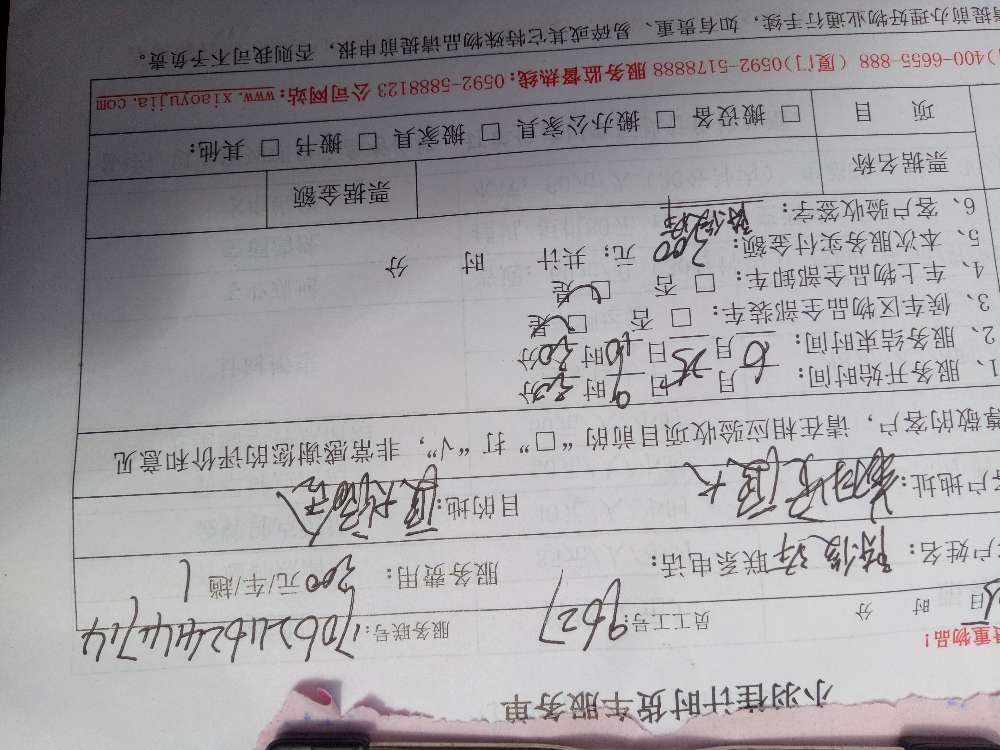 小羽佳计时货车服务单
贵重物品！
日 时 分 员工工号：9627 服务联号：
客户姓名： 联系电话： 服务费用：200元/车/趟
客户地址： 厦大 目的地：厦大
尊敬的客户，请在相应验收项目前的“□”打“√”，非常感谢您的评价和意见
1、服务开始时间：10月25日9时20分
2、服务结束时间： 月25日10时20分
3、候车区物品全部装车：□ 否 □ 是
4、车上物品全部卸车：□ 否 □ 是
5、本次服务实付金额：200元；共计 时 分
6、客户验收签字：
票据名称 票据金额
项 目 □ 搬设备 □ 搬办公家具 □ 搬家具 □ 搬书 □ 其他：
)400-6655-888（厦门)0592-5178888 服务监督热线：0592-5888123 公司网站：www.xiaoyujia.com
请提前办理好物业通行手续，如有贵重、易碎或其它特殊物品请提前申报，否则我司不予负责。